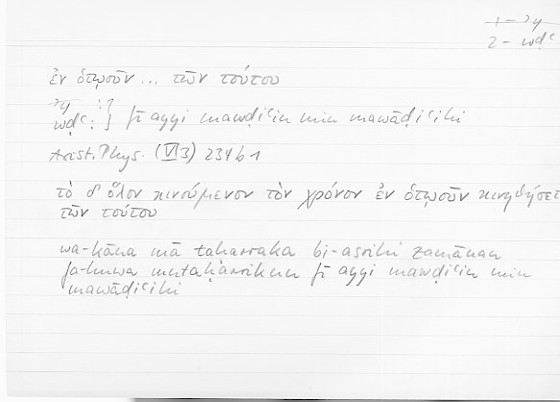 1 – ʾy
2 – wḍʿ
ἐν ὁτῳοῦν ... τῶν τούτου
ʾy :? } fī ayyi mawḍiʿin min mawāḍiʿihi
wḍʿ :
Arist. Phys. (VI 3) 234 b 1
τὸ δ' ὅλον κινούμενον τὸν χρόνον ἐν ὁτῳοῦν κινηθήσετ
τῶν τούτου
wa-kāna mā taḥarraka bi-asrihī zamānan
fa-huwa mutaḥarrikun fī ayyi mawḍiʿin min
mawāḍiʿihi